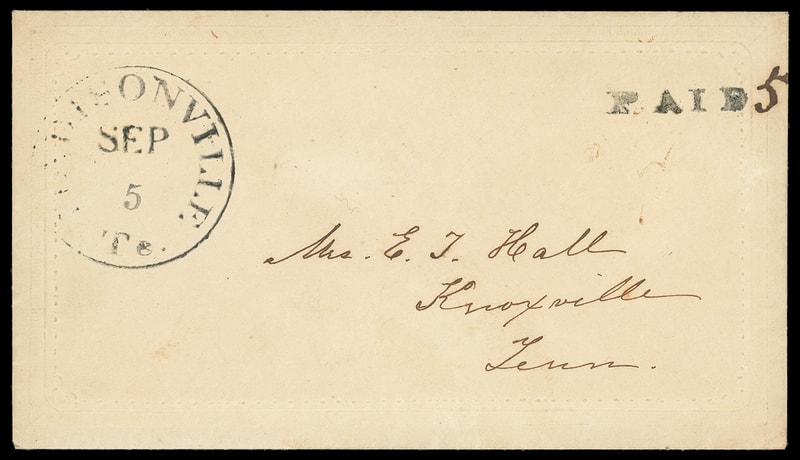 MADISONVILLE
SEP
5
Te.
PAID 5
Mrs. E. T. Hall
Knoxville
Tenn.